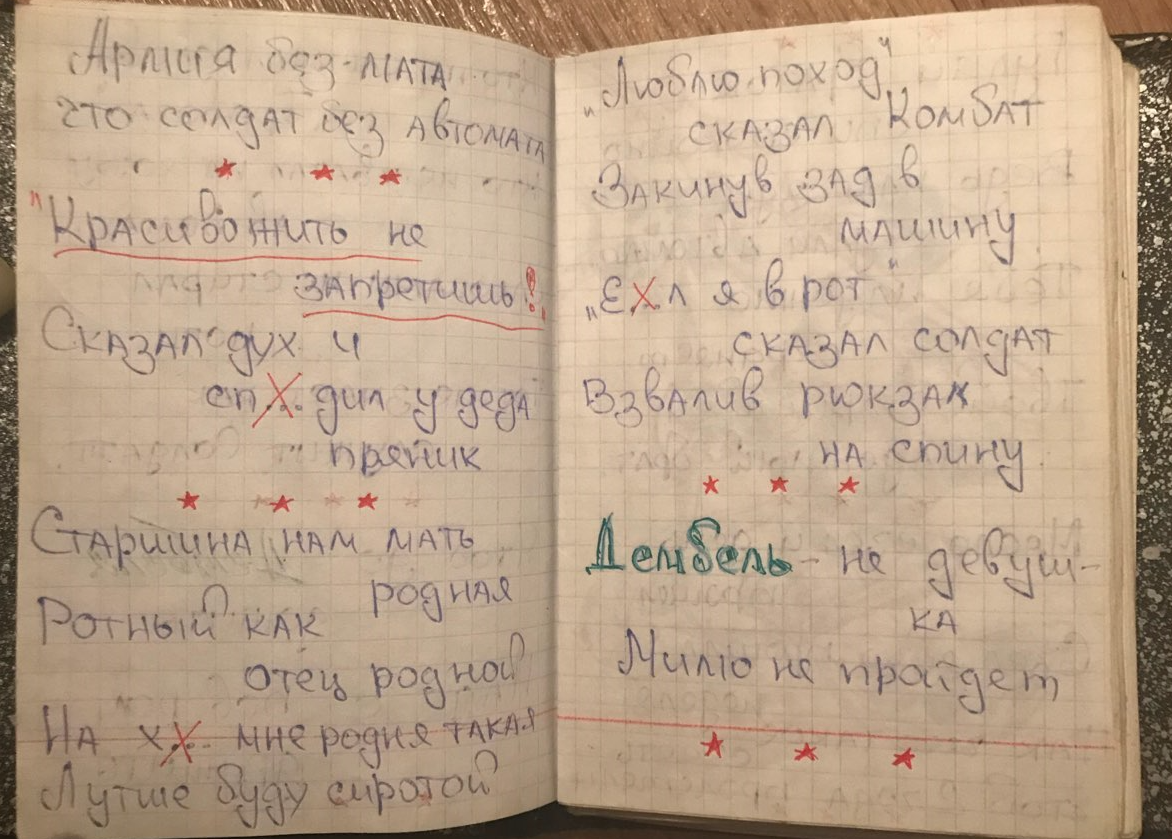 Армия без мата
что солдат без автомата
"Красиво жить не
запретишь!"
Сказал дух и
спХ дил у деда
пряник
Старшина нам мать
родная
Ротный как
отец родной
На хХ мне родня такая
Лутше буду сиротой
"Люблю поход"
сказал Комбат
Закинув зад в
машину
"ЕХл я в рот"
сказал солдат
Взвалив рюкзак
на спину
Дембель - не девуш-
ка
Мимо не пройдет